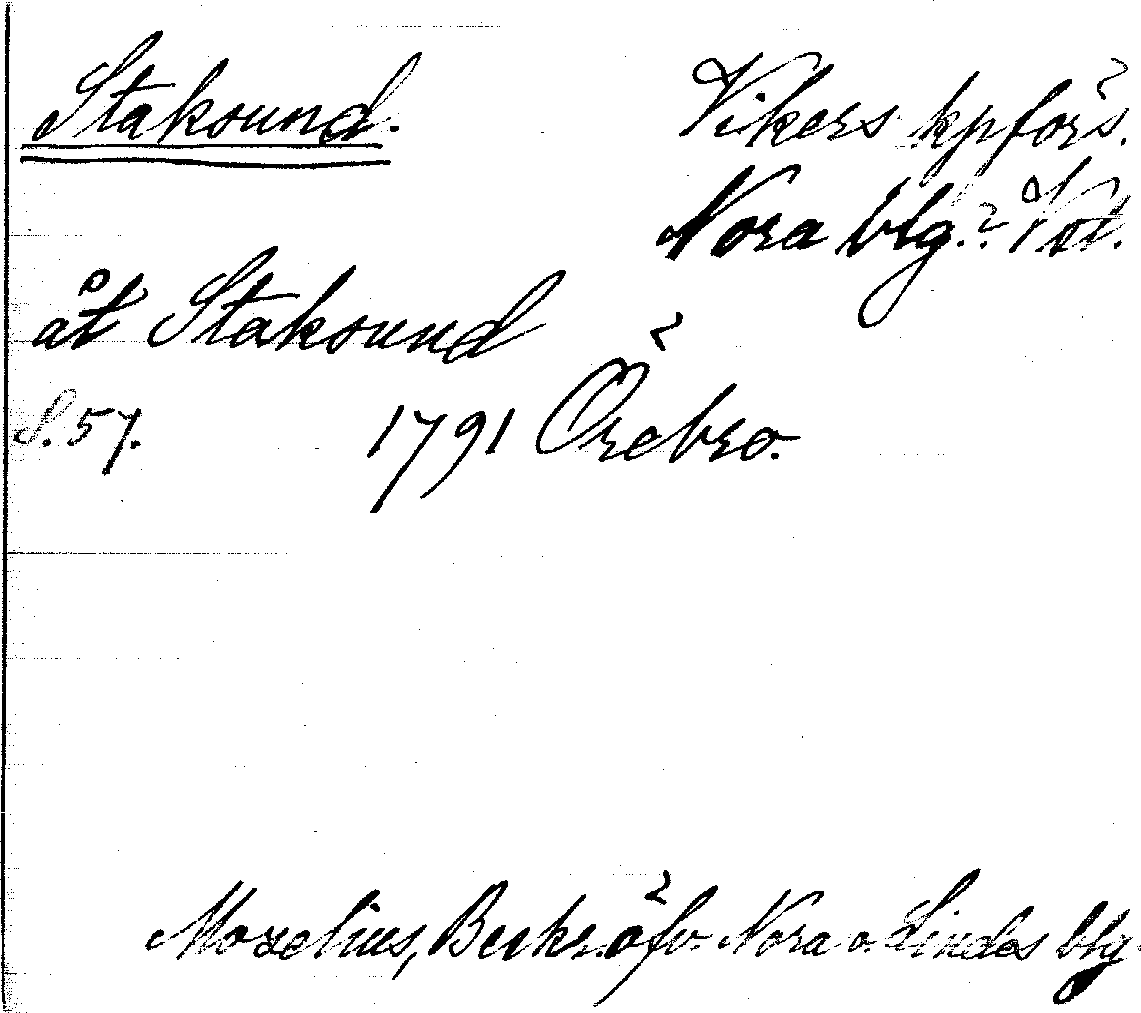 Staksund.
Vikers kpförs.
Nora blg. Vstl.
åt Staksund
S. 57. 1791 Örebro.
Morelius, Beskr. öfv. Nora o. Lindes blg.